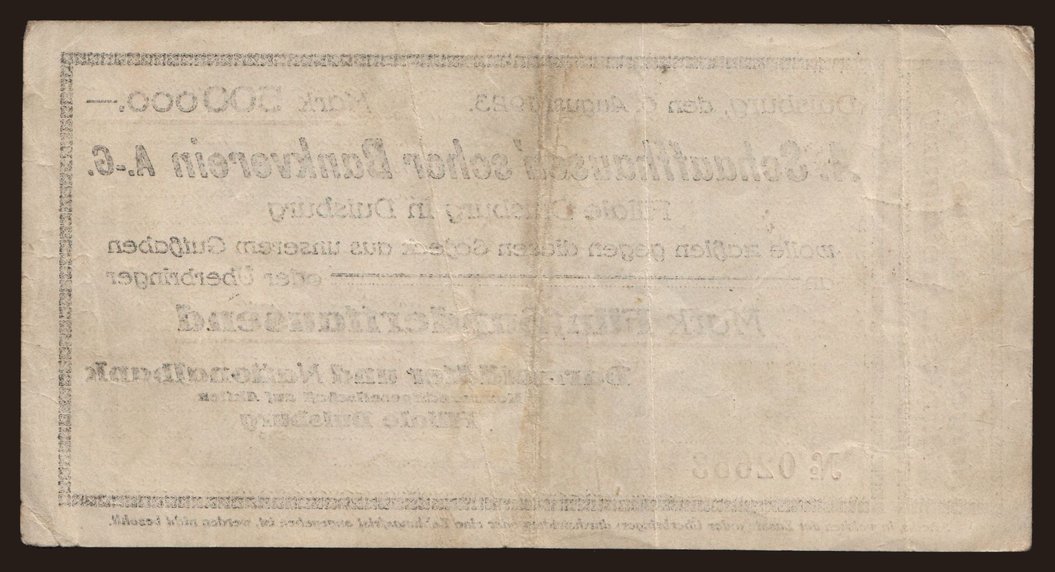 Duisburg, den 6. August 1923. Mark 500 000.—
A. Schaaffhausen'scher Bankverein A.-G.
Filiale Duisburg in Duisburg
wolle zahlen gegen diesen Scheck aus unserem Guthaben
an oder Überbringer
Mark Fünfhunderttausend
Darmstädter und Nationalbank
Kommanditgesellschaft auf Aktien
Filiale Duisburg
№ 02668
oder eine Zahlungsfrist angegeben ist, werden nicht bezahlt.